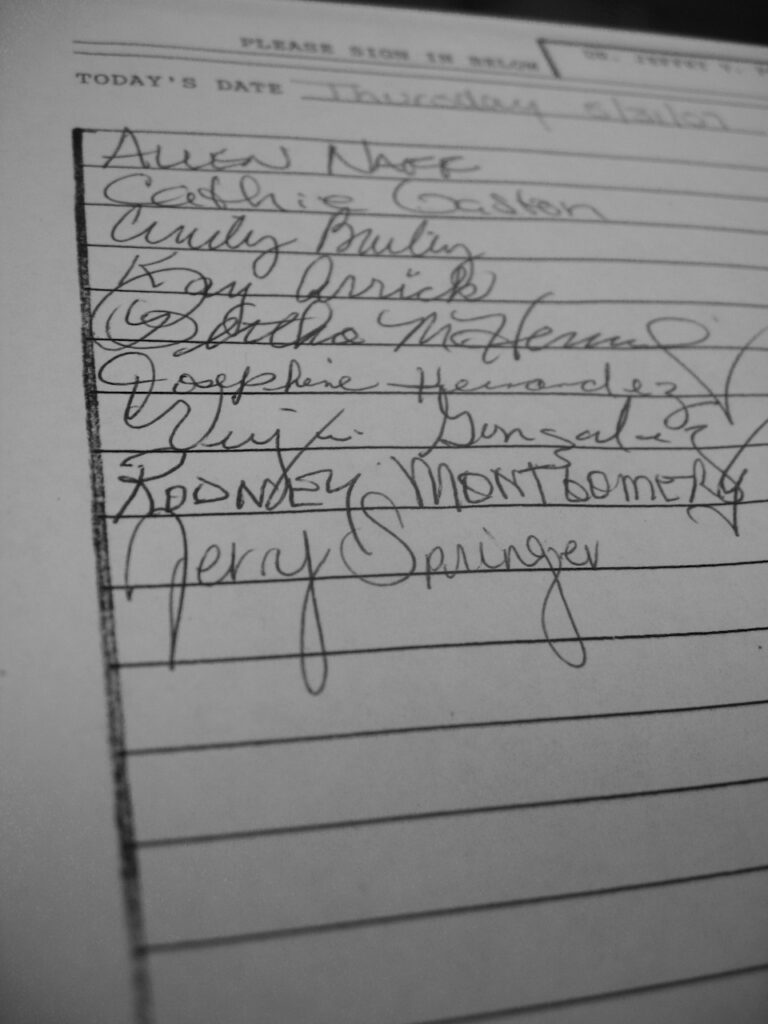 PLEASE SIGN IN BELOW
TODAY'S DATE Thursday 5/31/07
ALLEN NAFF
Cathie Gaston
Cindy Bailey
Kay Arrick
Bertha
Josephine Hernandez
Gonzalez
RODNEY MONTGOMERY
Jerry Springer